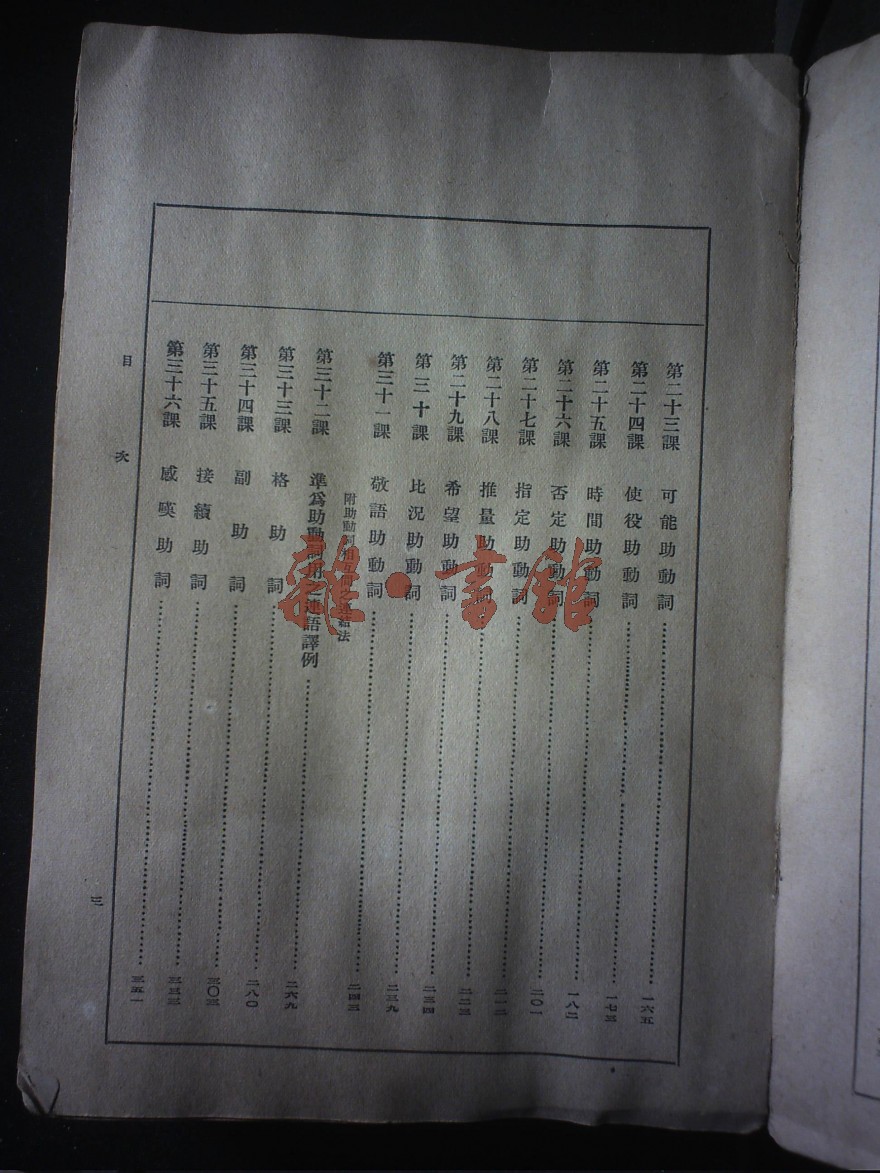 第二十三課　可能助動詞……一六五
第二十四課　使役助動詞……一七三
第二十五課　時間助動詞……一八二
第二十六課　否定助動詞……二〇一
第二十七課　指定助動詞……二一二
第二十八課　推量助動詞……二二三
第二十九課　希望助動詞……二三四
第三十課　比況助動詞……二三九
第三十一課　敬語助動詞……二四三
附助動詞相互間之連結法
第三十二課　準爲助動詞用之連語譯例……二六九
第三十三課　格助詞……二八〇
第三十四課　副助詞……三〇三
第三十五課　接續助詞……三三三
第三十六課　感嘆助詞……三五一
目次
三
雜·書館